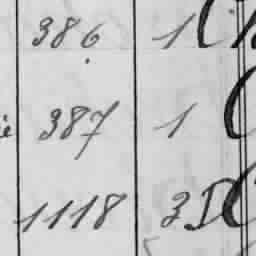 386 1
ie 387 1
1118 3 D